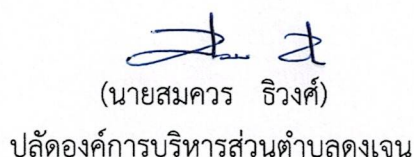 (นายสมควร ธิวงศ์)
ปลัดองค์การบริหารส่วนตำบลดงเจน